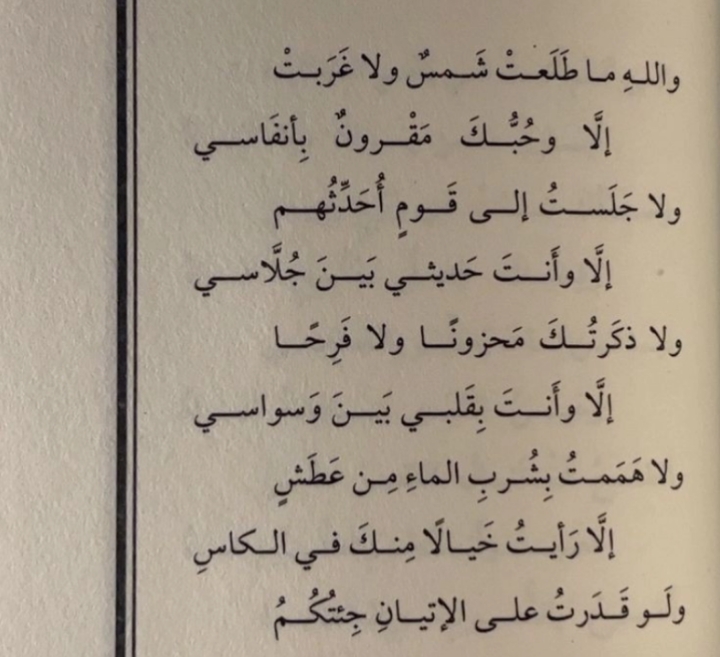 واللـهِ مـا طَلَعـتْ شَـمسٌ ولا غَرَبـتْ
إلَّا وحُبُّـكَ مَقْـرونٌ بِأنفَاسـي
ولا جَلَسـتُ إلـى قَـومٍ أُحَدِّثُهـم
إلَّا وأَنـتَ حَديثـي بَيـنَ جُلَّاسـي
ولا ذكَرتُـكَ مَحزونًـا ولا فَرِحًـا
إلَّا وأَنـتَ بِقَلبـي بَيـنَ وَسواسـي
ولا هَمَمـتُ بِشُـربِ الماءِ مِـن عَطَشٍ
إلَّا رَأيـتُ خَيـالًا مِنـكَ فـي الـكاسِ
ولَـو قَـدَرتُ علـى الإتيـانِ جِئتُكُـمُ